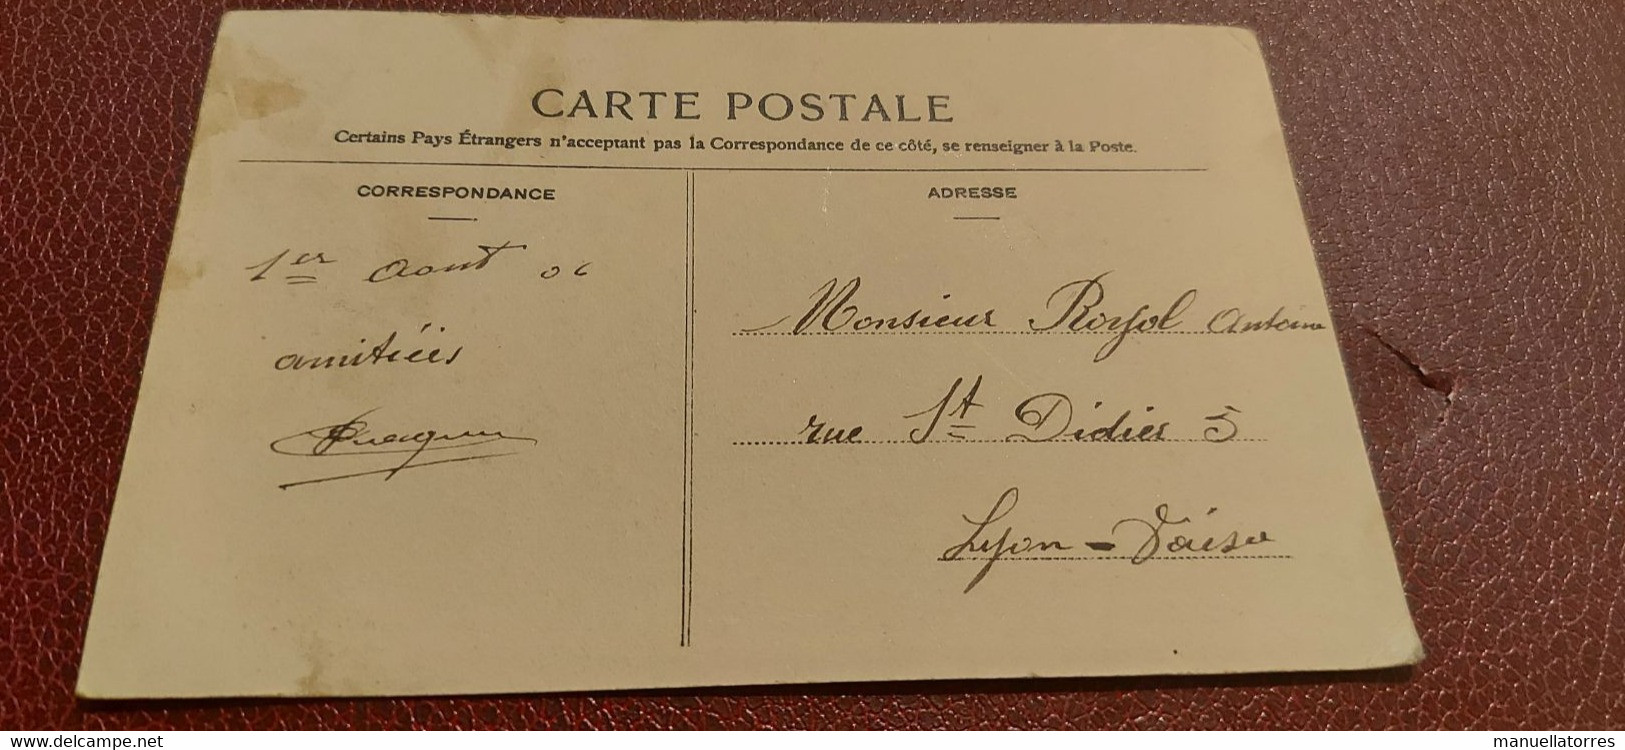 CARTE POSTALE
Certains Pays Étrangers n'acceptant pas la Correspondance de ce côté, se renseigner à la Poste.
CORRESPONDANCE
1er aout 06
amitiées
ADRESSE
Monsieur Royol Antoine
rue St Didier 5
Lyon - Vaise
© delcampe.net
manuellatorres